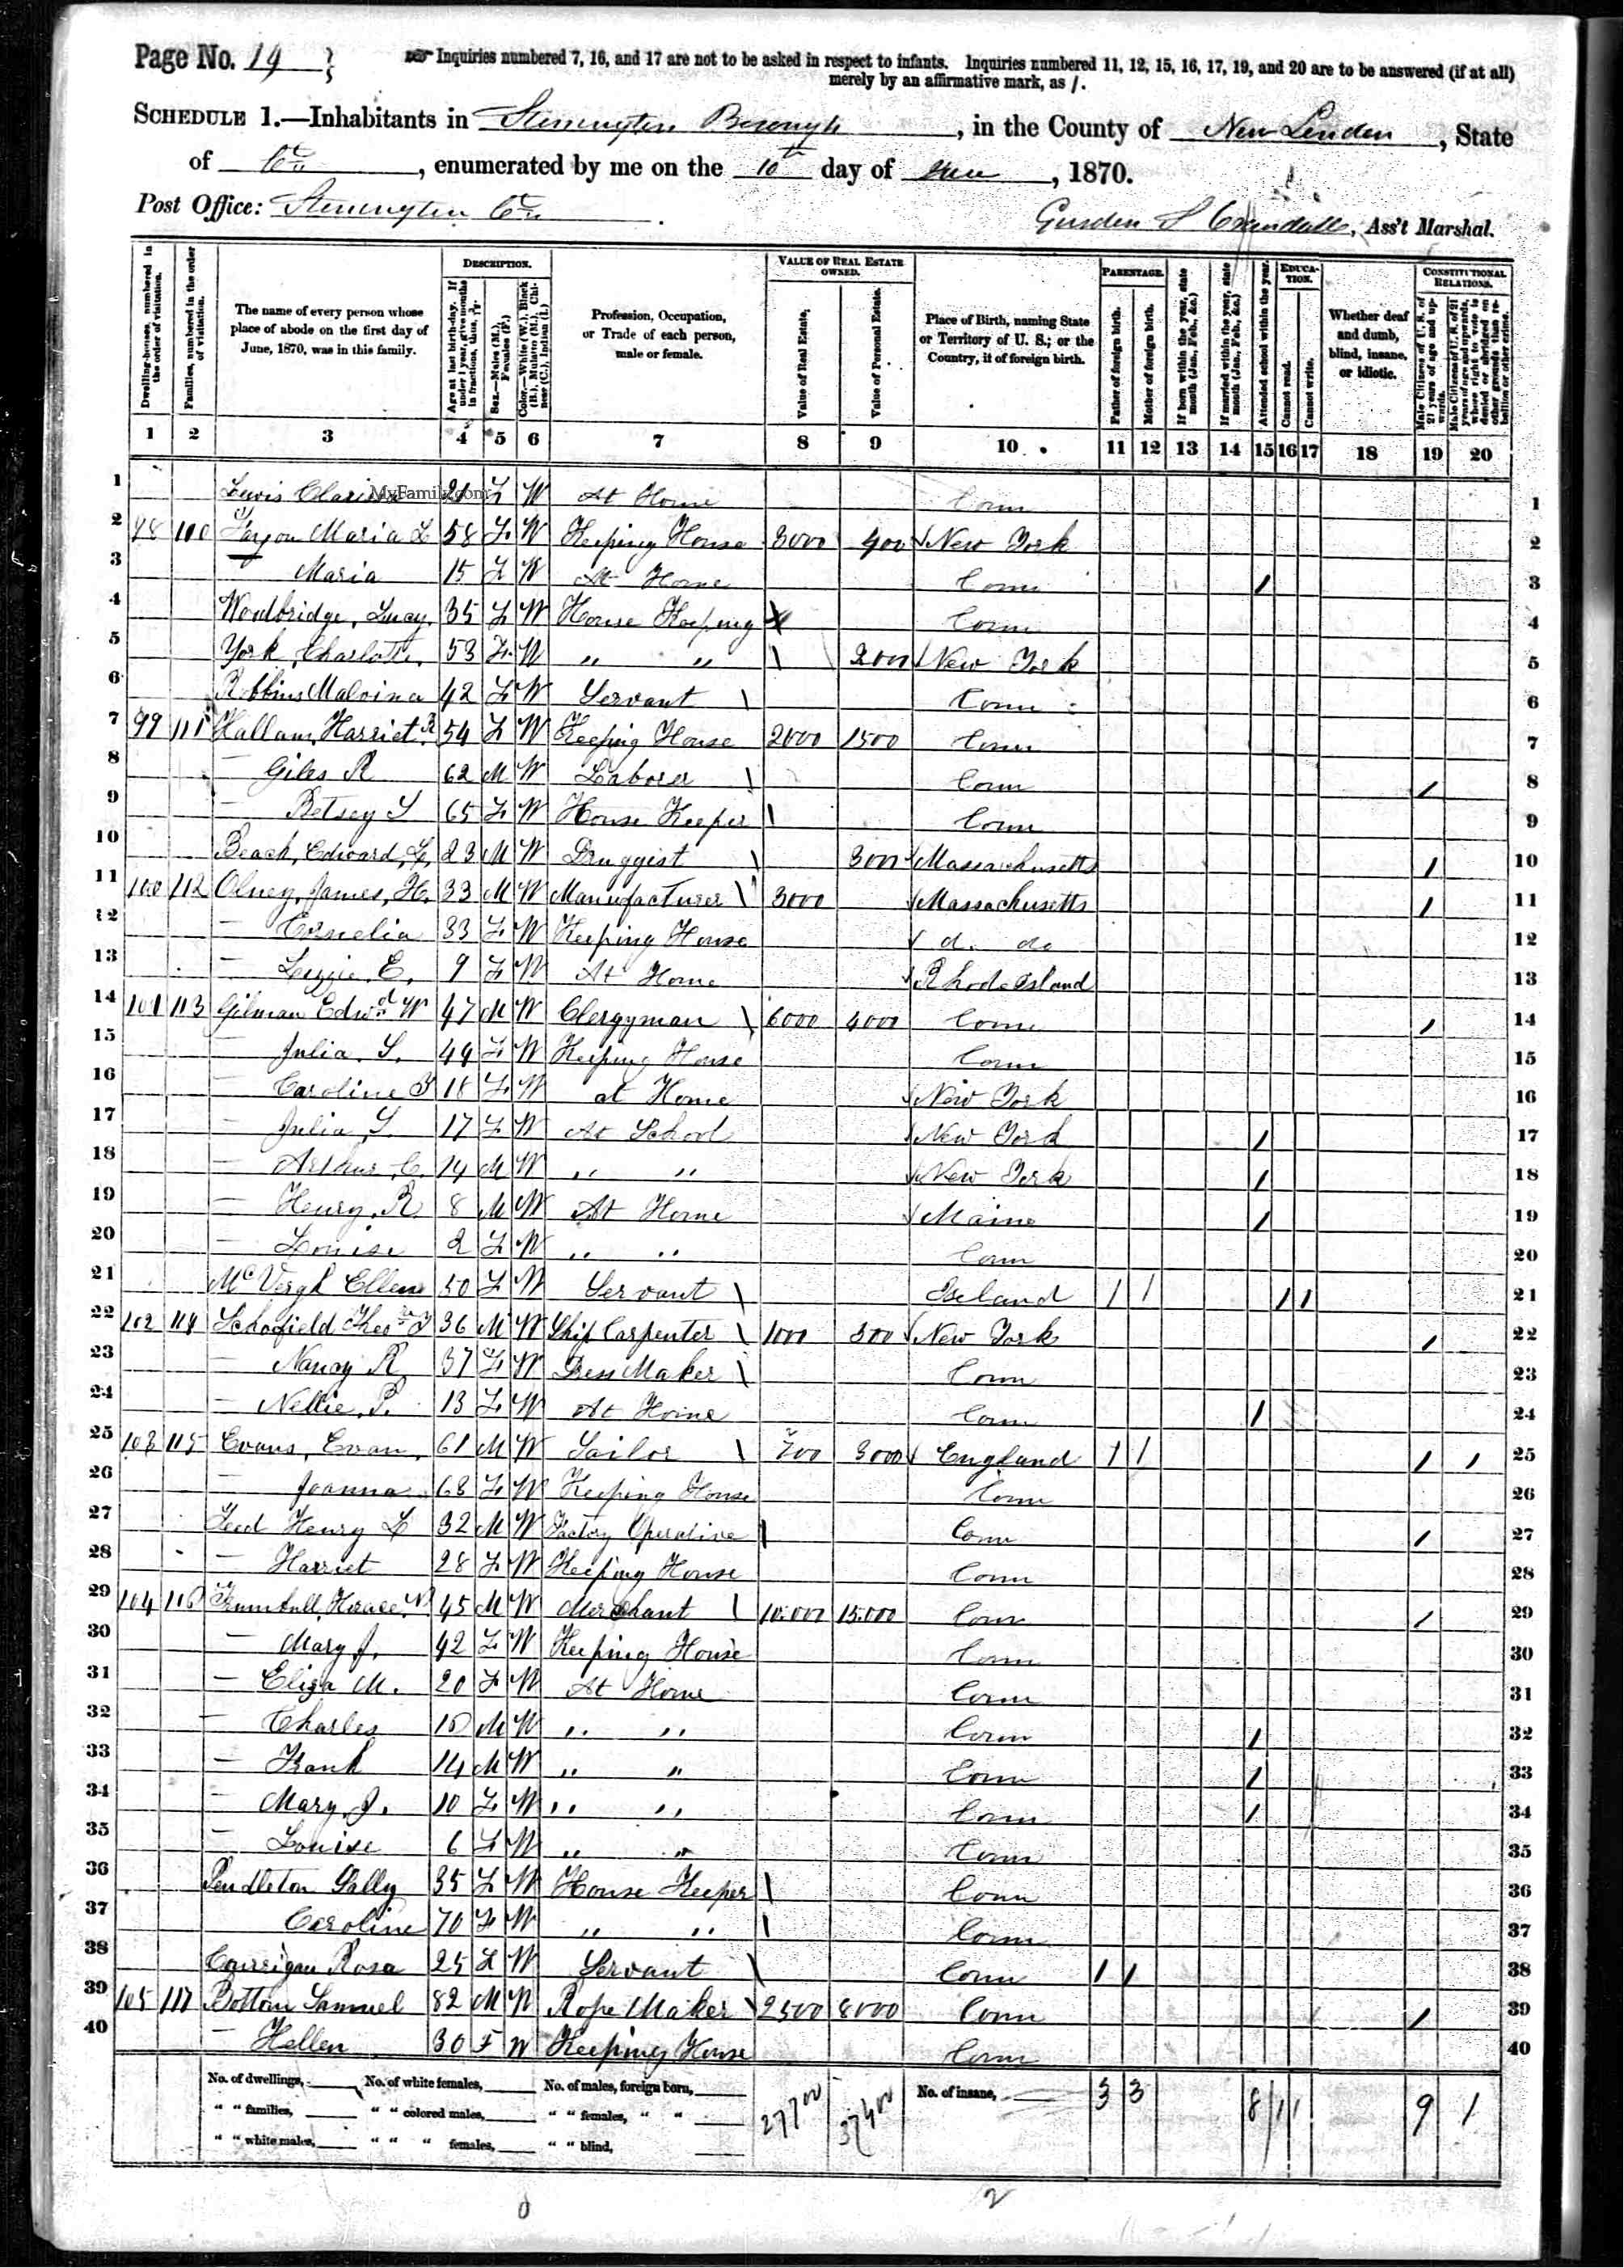 Page No. 19
Inquiries numbered 7, 16, and 17 are not to be asked in respect to infants. Inquiries numbered 11, 12, 15, 16, 17, 19, and 20 are to be answered (if at all)
merely by an affirmative mark, as /.
SCHEDULE 1.—Inhabitants in Stonington Borough, in the County of New London, State
of Ct, enumerated by me on the 10th day of June, 1870.
Post Office: Stonington Ct
Gurdon S Crandall, Ass't Marshal.
Dwelling-houses, numbered in the order of visitation.
Families, numbered in the order of visitation.
The name of every person whose place of abode on the first day of June, 1870, was in this family.
DESCRIPTION.
Age at last birth-day. If under 1 year, give months in fractions, thus, 3/12.
Sex.—Males (M.), Females (F.)
Color.—White (W.), Black (B.), Mulatto (M.), Chinese (C.), Indian (I.)
Profession, Occupation, or Trade of each person, male or female.
VALUE OF REAL ESTATE OWNED.
Value of Real Estate.
Value of Personal Estate.
Place of Birth, naming State or Territory of U. S.; or the Country, if of foreign birth.
PARENTAGE.
Father of foreign birth.
Mother of foreign birth.
If born within the year, state month (Jan., Feb., &c.)
If married within the year, state month (Jan., Feb., &c.)
Attended school within the year.
EDUCATION.
Cannot read.
Cannot write.
Whether deaf and dumb, blind, insane, or idiotic.
CONSTITUTIONAL RELATIONS.
Male Citizens of U. S. of 21 years of age and upwards.
Male Citizens of U. S. of 21 years of age and upwards, whose right to vote is denied or abridged on other grounds than rebellion or other crime.
1 2 3 4 5 6 7 8 9 10 11 12 13 14 15 16 17 18 19 20
1 Lewis Clarissa 21 F W At Home Conn 1
MyFamily.com
2 98 110 Maria L 58 F W Keeping House 3000 400 New York 2
3 Maria 15 F W At Home Conn / 3
4 Woodbridge, Lucy 35 F W House Keeping Conn 4
5 York Charlotte 53 F W " " 2000 New York 5
6 Robbins Malvina 42 F W Servant Conn 6
7 99 111 Hallam, Harriet R 54 F W Keeping House 2000 1500 Conn 7
8 — Giles R 62 M W Laborer Conn / 8
9 — Betsey S 65 F W House Keeper Conn 9
10 Beach, Edward, L, 23 M W Druggist 300 Massachusetts / 10
11 100 112 Olney, James, H. 33 M W Manufacturer 3000 Massachusetts / 11
12 — Cornelia 33 F W Keeping House do do 12
13 — Lizzie E. 9 F W At Home Rhode Island 13
14 101 113 Gilman Edwd W 47 M W Clergyman 6000 4000 Conn / 14
15 — Julia S. 44 F W Keeping House Conn 15
16 — Caroline 18 F W at Home New York 16
17 — Julia S. 17 F W At School New York / 17
18 — Arthur C. 14 M W " " New York / 18
19 — Henry, R. 8 M W At Home Maine / 19
20 — Louise 2 F W " " Conn 20
21 Ellen 50 F W Servant Ireland / / / / 21
22 102 114 Schofield 36 M W Ship Carpenter 1000 500 New York / 22
23 — Nancy R 37 F W Dress Maker Conn 23
24 — Nellie P. 13 F W At Home Conn / 24
25 103 115 Evans, Evan, 61 M W Sailor 700 3000 England / / / / 25
26 — Joanna 68 F W Keeping House Conn 26
27 Henry L 32 M W Factory Operative Conn / 27
28 — Harriet 28 F W Keeping House Conn 28
29 104 116 Trumbull, Horace N 45 M W Merchant 10.000 15.000 Conn / 29
30 — Mary J. 42 F W Keeping House Conn 30
31 — Eliza M. 20 F W At Home Conn 31
32 — Charles M W " " Conn / 32
33 — Frank 14 M W " " Conn / 33
34 — Mary J. 10 F W " " Conn / 34
35 — Louise 6 F W " " Conn 35
36 Pendleton Sally 35 F W House Keeper Conn 36
37 Caroline 70 F W " " Conn 37
38 Corrigan Rosa 25 F W Servant Conn / / 38
39 105 117 Bottom Samuel 82 M W Rope Maker 2500 8000 Conn / 39
40 — Hellen 30 F W Keeping House Conn 40
No. of dwellings, No. of white females, No. of males, foreign born, No. of insane,
" " families, " " colored males, " " females, " "
" " white males, " " " females, " " blind,
27700 37400 3 3 8 1 1 9 1
0 2